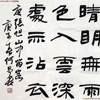 晴明無雨
色入雲深
處亦沾衣
張旭山中留客
庚子春何